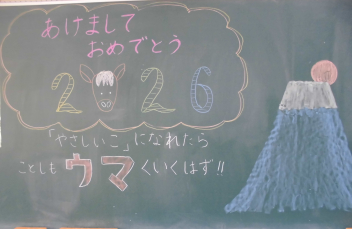 あけまして
おめでとう
2026
「やさしいこ」になれたら
ことしも ウマくいくはず!!